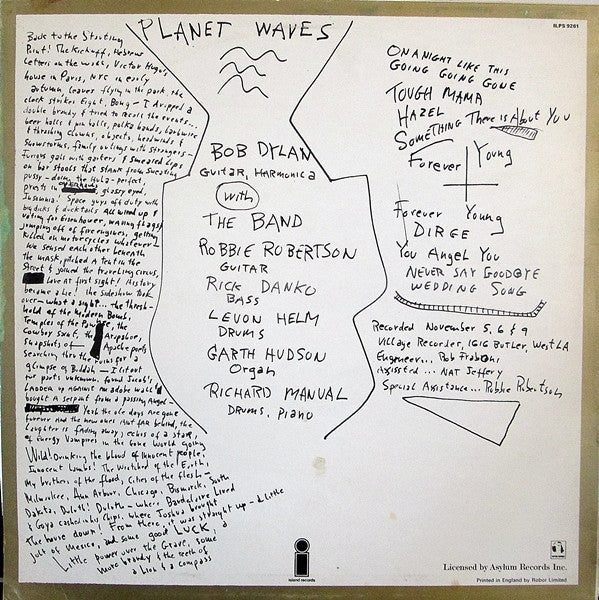 ILPS 9261
PLANET WAVES
Back to the Starting
Point! The Kickoff, Hebrew
Letters on the wall, Victor Hugo's
house in Paris, NYC in early
autumn, leaves flying in the park, the
clock strikes Eight, Bong - I dropped a
double brandy & tried to recall the events...
beer halls & pin balls, polka bands, barbwire
& thrashing clowns, objects, headwinds &
snowstorms, family outings with strangers -
Furious gals with garters & smeared lips
on bar stools that stank from sweating
pussy - doing the Hula - perfect,
priests in overhauls, glassy eyed,
Insomnia! Space guys off duty with
big dicks & ducktails All wired up &
voting for Eisenhower, waving flags &
jumping off of fire engines, getting
killed on motorcycles whatever -
We sensed each other beneath
the mask, pitched a tent in the
Street & joined the traveling circus,
Love at first sight! History
became a lie! the sideshow took
over - what a sight... the thresh-
hold of the Modern Bomb,
Temples of the Pawnee, the
Cowboy Saint, the Arapahoe,
snapshots of Apache poets
searching thru the ruins for a
glimpse of Buddah - I lit out
for parts unknown, found Jacob's
Ladder up against an adobe wall &
bought a serpent from a passing Angel -
Yeah the old days are gone
forever And the new ones Aint far behind, the
Laughter is fading away, echos of a star,
of Energy Vampires in the Gone World going
Wild! Drinking the blood of innocent people,
Innocent Lambs! The Wretched of the Earth,
My brothers of the flood, Cities of the flesh -
Milwaukee, Ann Arbor, Chicago, Bismarck, South
Dakota, Duluth! Duluth - where Baudelaire Lived
& Goya cashed in his Chips, where Joshua brought
The house down! From there, it was straight up - a little
jolt of Mexico, and some good LUCK, a
Little power over the Grave, some
more brandy & the teeth of
a Lion & a compass
BOB DYLAN
Guitar, Harmonica
with
THE BAND
ROBBIE ROBERTSON
GUITAR
RICK DANKO
BASS
LEVON HELM
DRUMS
GARTH HUDSON
Organ
RICHARD MANUAL
DRUMS, Piano
ON A NIGHT LIKE THIS
GOING GOING GONE
TOUGH MAMA
HAZEL
SOMETHING There is About You
Forever Young
Forever Young
DIRGE
You Angel You
NEVER SAY GOODBYE
WEDDING SONG
Recorded November 5, 6 & 9
Village Recorder, 1616 Butler, West LA
Engineer... Rob Fraboni
Assisted... NAT Jeffery
Special Assistance... Robbie Robertson
island records
Licensed by Asylum Records Inc.
Printed in England by Robor Limited